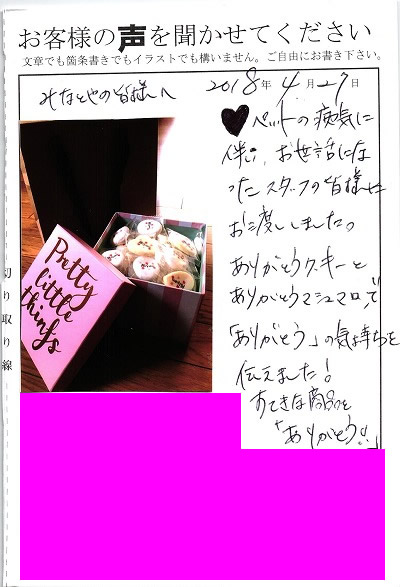 お客様の声を聞かせてください
文章でも箇条書きでもイラストでも構いません。ご自由にお書き下さい。
みなとやの皆様へ
2018年4月27日
♥ペットの病気に
伴い、お世話にな
ったスタッフの皆様に
お渡ししました。
ありがとうクッキーと
ありがとうマシュマロで
「ありがとう」の気持ちを
伝えました!
すてきな商品を
「ありがとう!!」
Pretty
little
things
切り取り線